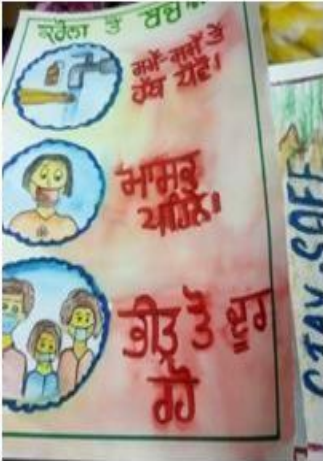 ਕਰੋਨਾ ਤੋਂ ਬਚਾਅ
ਸਮੇਂ-ਸਮੇਂ ਤੇ
ਹੱਥ ਧੋਵੋ।
ਮਾਸਕ
ਪਹਿਨੋ।
ਭੀੜ ਤੋਂ ਦੂਰ
ਰਹੋ
STAY SAFE